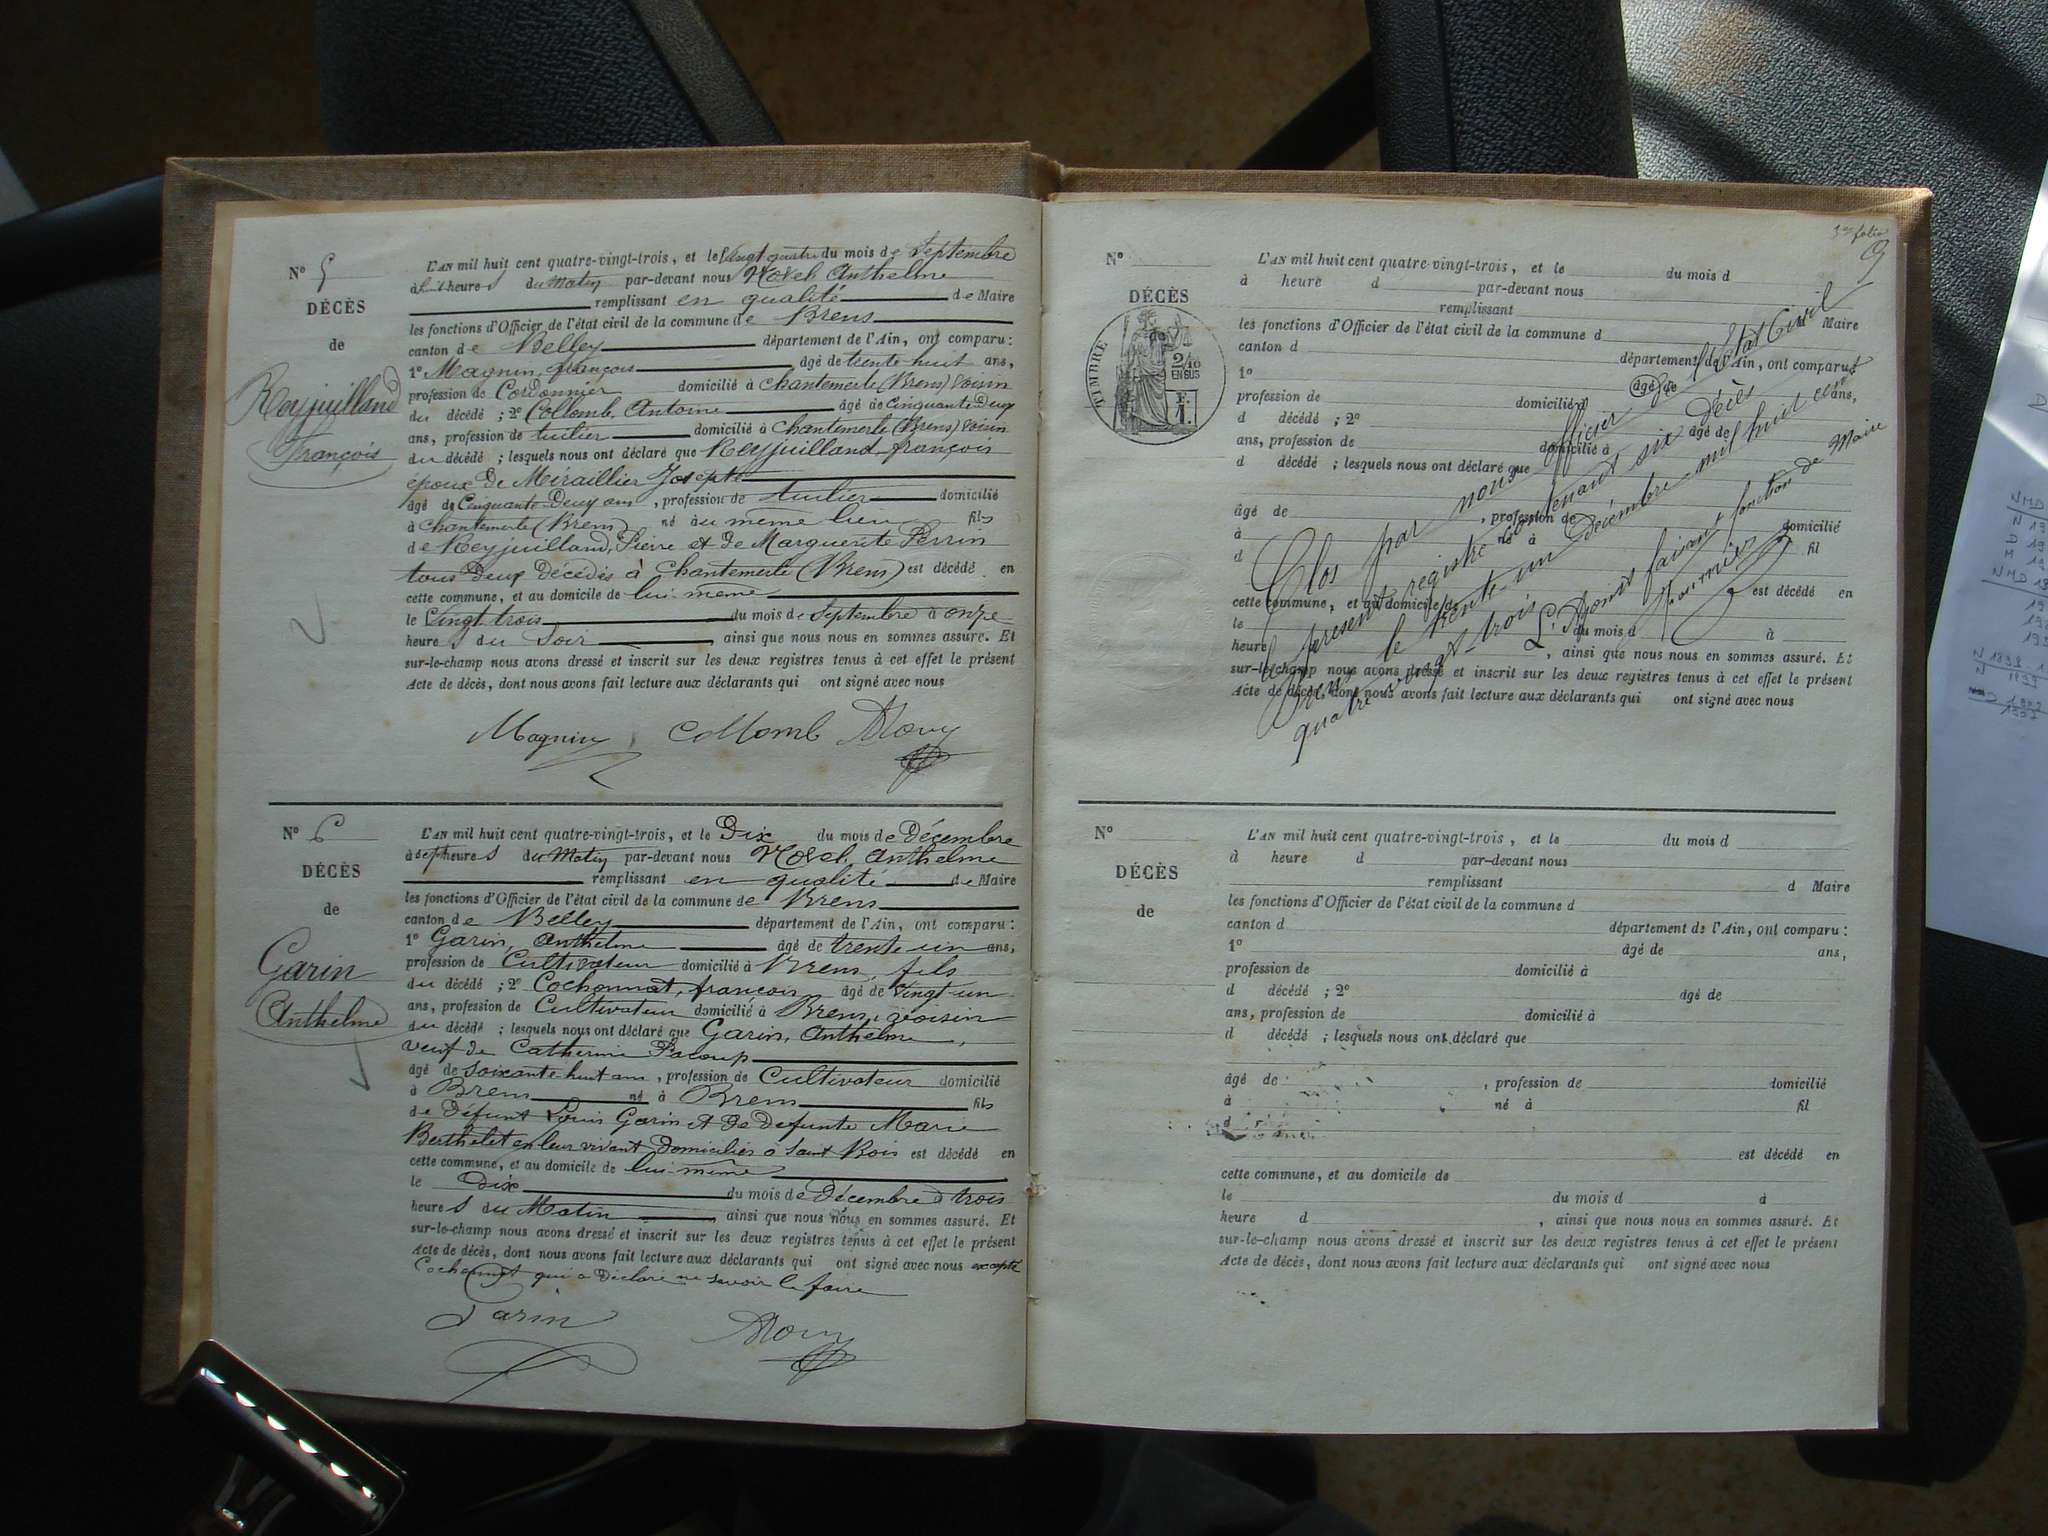 N° 5
DÉCÈS
de
Reyjuilland
François
L'AN mil huit cent quatre-vingt-trois, et le Vingt quatre du mois de Septembre
à huit heures du Matin par-devant nous Anthelme
remplissant en qualité de Maire
les fonctions d'Officier de l'état civil de la commune de Brens
canton de Belley département de l'Ain, ont comparu :
1° Magnin, françois âgé de trente huit ans,
profession de Cordonnier domicilié à Chantemerle (Brens) voisin
du décédé ; 2° Collomb, Antoine âgé de Cinquante Deux
ans, profession de tuilier domicilié à Chantemerle (Brens) voisin
du décédé ; lesquels nous ont déclaré que Reyjuilland, françois
époux de Miraillier Josepte
âgé de Cinquante Deux ans, profession de tuilier domicilié
à Chantemerle (Brens) né au même lieu fils
de Reyjuilland, Pierre et de Marguerite Perrin
tous deux décédés à Chantemerle (Brens) est décédé en
cette commune, et au domicile de lui-même
le Vingt trois du mois de Septembre à onze
heures du Soir ainsi que nous nous en sommes assuré. Et
sur-le-champ nous avons dressé et inscrit sur les deux registres tenus à cet effet le présent
Acte de décès, dont nous avons fait lecture aux déclarants qui ont signé avec nous
Magnin Collomb
N° 6
DÉCÈS
de
Garin
Anthelme
L'AN mil huit cent quatre-vingt-trois, et le Dix du mois de Décembre
à sept heures du Matin par-devant nous Anthelme
remplissant en qualité de Maire
les fonctions d'Officier de l'état civil de la commune de Brens
canton de Belley département de l'Ain, ont comparu :
1° Garin, Anthelme âgé de trente un ans,
profession de Cultivateur domicilié à Brens, fils
du décédé ; 2° Cochonnat, françois âgé de Vingt un
ans, profession de Cultivateur domicilié à Brens, voisin
du décédé ; lesquels nous ont déclaré que Garin, Anthelme,
veuf de Catherine
âgé de soixante huit ans, profession de Cultivateur domicilié
à Brens né à Brens fils
de défunt Louis Garin et de défunte Marie
Berthelet en leur vivant domiciliés à Saint Bois est décédé en
cette commune, et au domicile de lui-même
le Dix du mois de Décembre à trois
heures du Matin, ainsi que nous nous en sommes assuré. Et
sur-le-champ nous avons dressé et inscrit sur les deux registres tenus à cet effet le présent
Acte de décès, dont nous avons fait lecture aux déclarants qui ont signé avec nous excepté
Cochonnat qui a déclaré ne savoir le faire
Garin
3me folio
N°
DÉCÈS
de
TIMBRE
2/10 EN SUS
F. 1.
L'AN mil huit cent quatre-vingt-trois, et le du mois d
à heure d par-devant nous
remplissant
Maire
les fonctions d'Officier de l'état civil de la commune d
canton d département de l'Ain, ont comparu :
1° âgé de ans,
profession de domicilié à
d décédé ; 2° âgé de
ans, profession de domicilié à
d décédé ; lesquels nous ont déclaré que
âgé de , profession de domicilié
à né à fil
d
est décédé en
cette commune, et au domicile de
le du mois d à
heure , ainsi que nous nous en sommes assuré. Et
sur-le-champ nous avons dressé et inscrit sur les deux registres tenus à cet effet le présent
Acte de décès, dont nous avons fait lecture aux déclarants qui ont signé avec nous
Clos par nous officier de l'État Civil
le présent registre contenant six décès
à Brens le trente-un décembre mil huit cent
quatre-vingt-trois L'Adjoint faisant fonction de Maire
N°
DÉCÈS
de
L'AN mil huit cent quatre-vingt-trois, et le du mois d
à heure d par-devant nous
remplissant d Maire
les fonctions d'Officier de l'état civil de la commune d
canton d département de l'Ain, ont comparu :
1° âgé de ans,
profession de domicilié à
d décédé ; 2° âgé de
ans, profession de domicilié à
d décédé ; lesquels nous ont déclaré que
âgé de , profession de domicilié
à né à fil
d
est décédé en
cette commune, et au domicile de
le du mois d à
heure d , ainsi que nous nous en sommes assuré. Et
sur-le-champ nous avons dressé et inscrit sur les deux registres tenus à cet effet le présent
Acte de décès, dont nous avons fait lecture aux déclarants qui ont signé avec nous